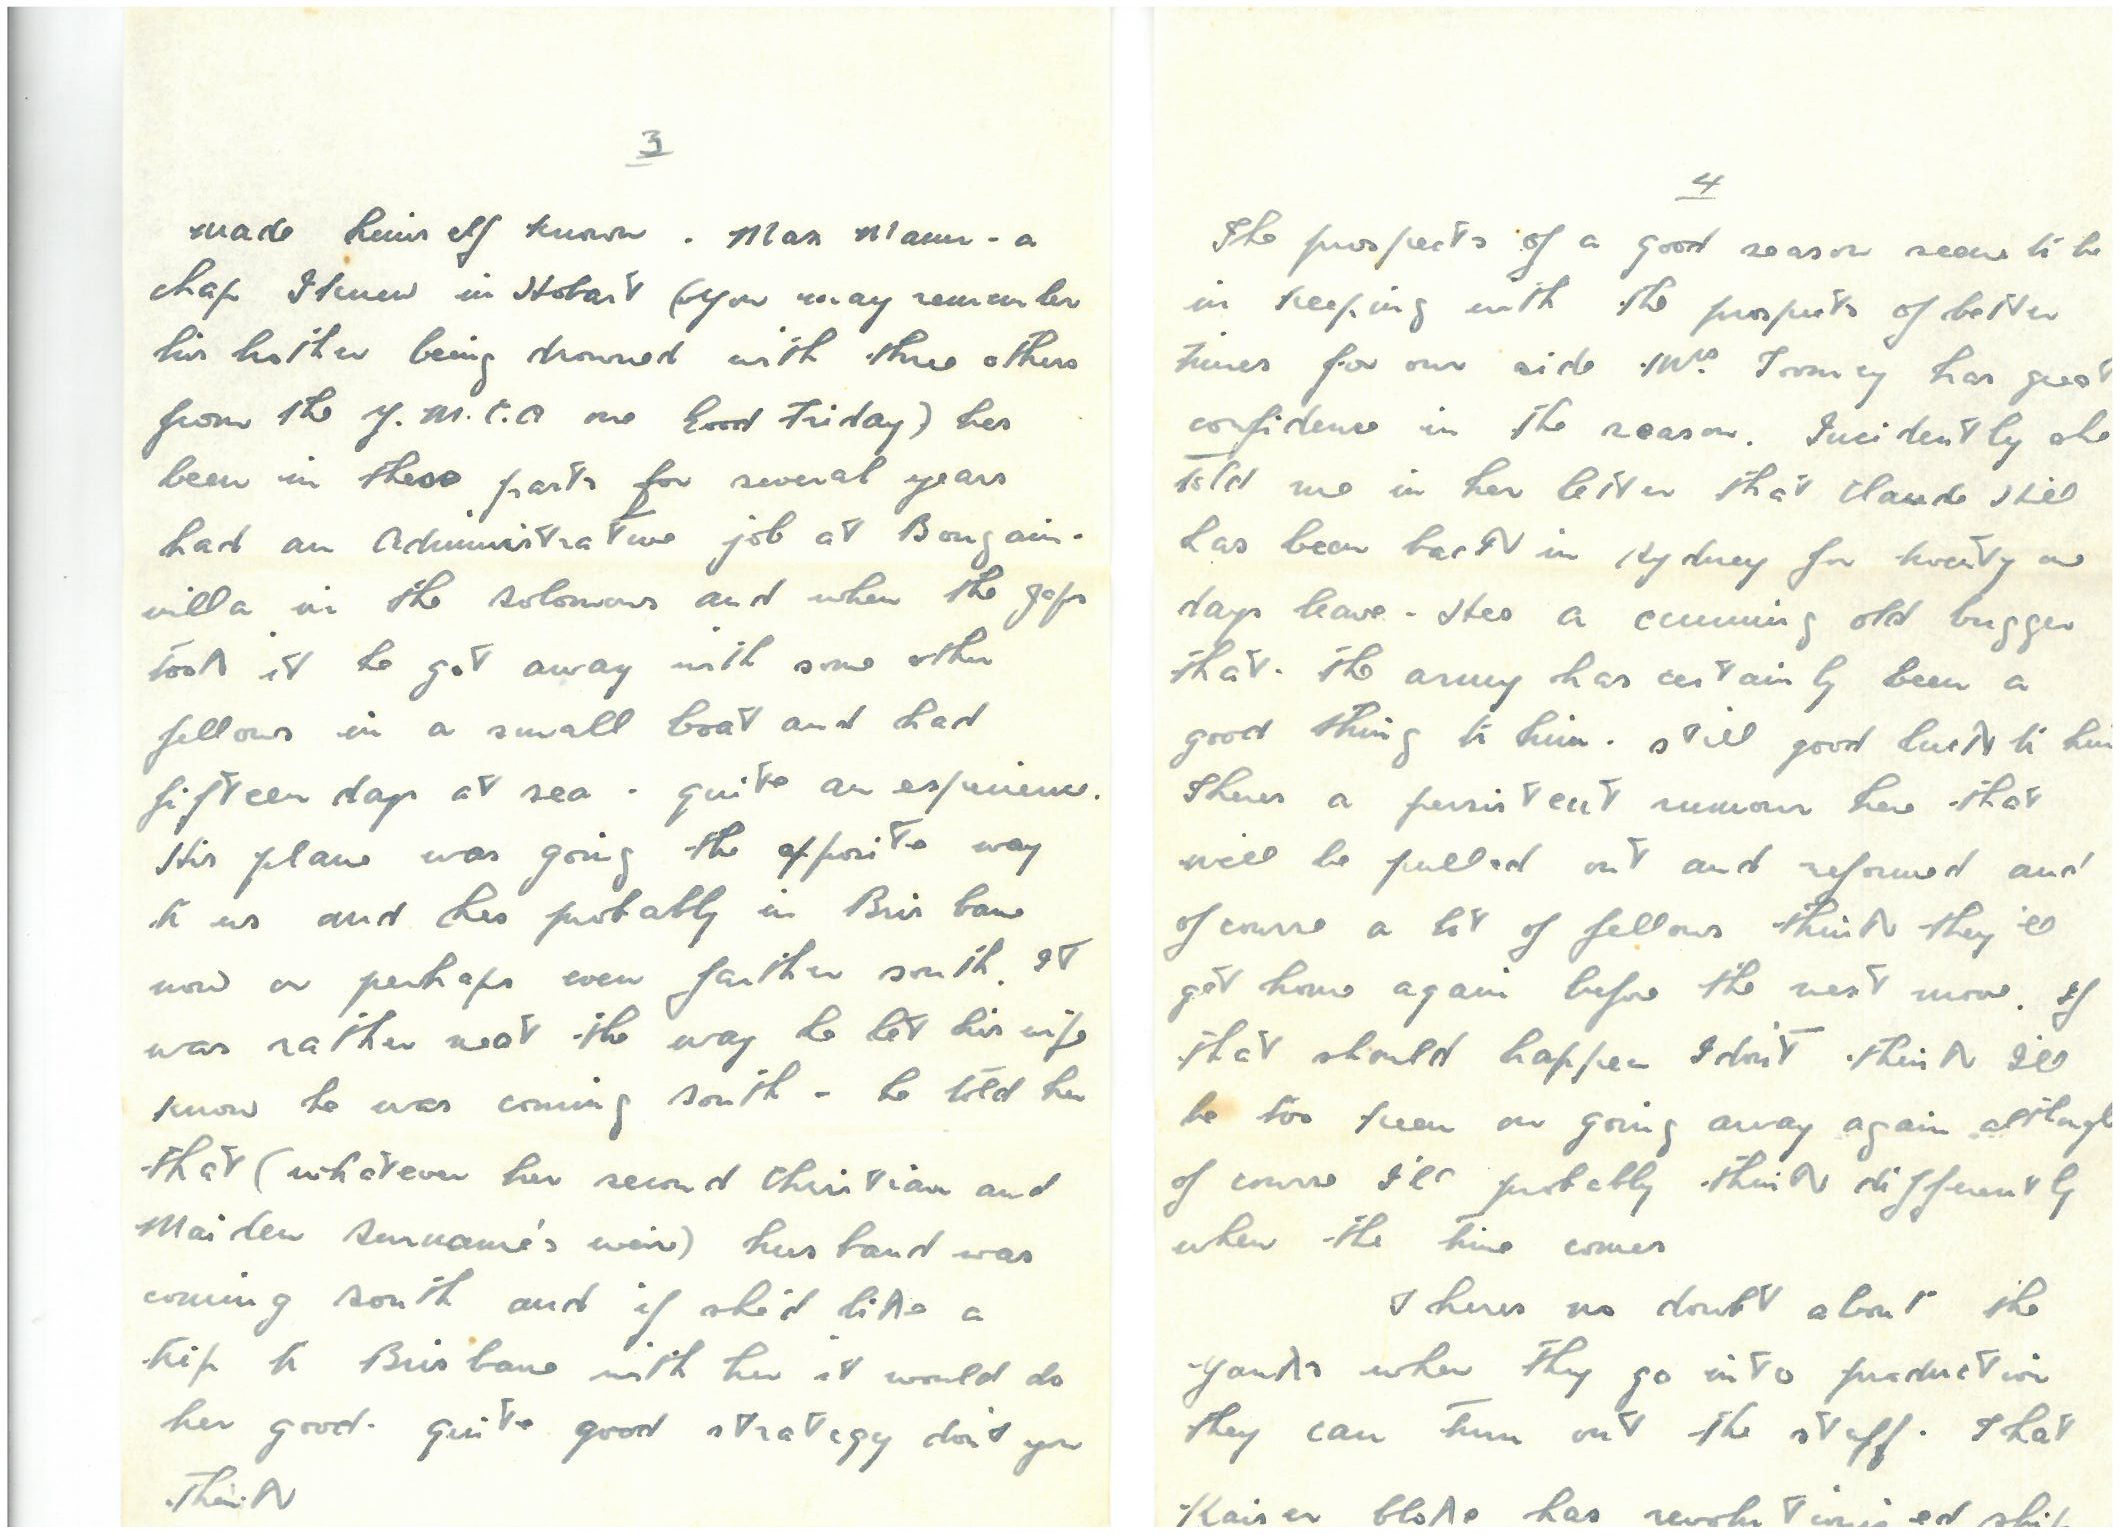 3
made himself known. Max Mann - a
chap I knew in Hobart (you may remember
his brother being drowned with three others
from the Y.M.C.A one Good Friday) hes
been in these parts for several years
had an Administrative job at Bougain-
villa in the Solomons and when the Japs
took it he got away with some other
fellows in a small boat and had
fifteen days at sea - quite an experience.
His plane was going the opposite way
to us and hes probably in Brisbane
now or perhaps even farther south. It
was rather neat the way he let his wife
know he was coming South - he told her
that (whatever her second Christian and
Maiden Surname's were) husband was
coming South and if she'd like a
trip to Brisbane with her it would do
her good. Quite good strategy don't you
think
4
The prospects of a good season seem to be
in keeping with the prospects of better
times for our side. Mrs. Toomey has great
confidence in the season. Incidently she
told me in her letter that Claude Hill
has been back in Sydney for twenty one
days leave - Hes a cunning old bugger
that. The army has certainly been a
good thing to him. Still good luck to him
Theres a persistent rumour here that
will be pulled out and reformed and
of course a lot of fellows think they'll
get home again before the next move. If
that should happen I don't think Ill
be too keen on going away again although
of course I'll probably think differently
when the time comes
Theres no doubt about the
Yanks when they go into production
they can turn out the stuff. That
Kaiser bloke has revolutionised ship